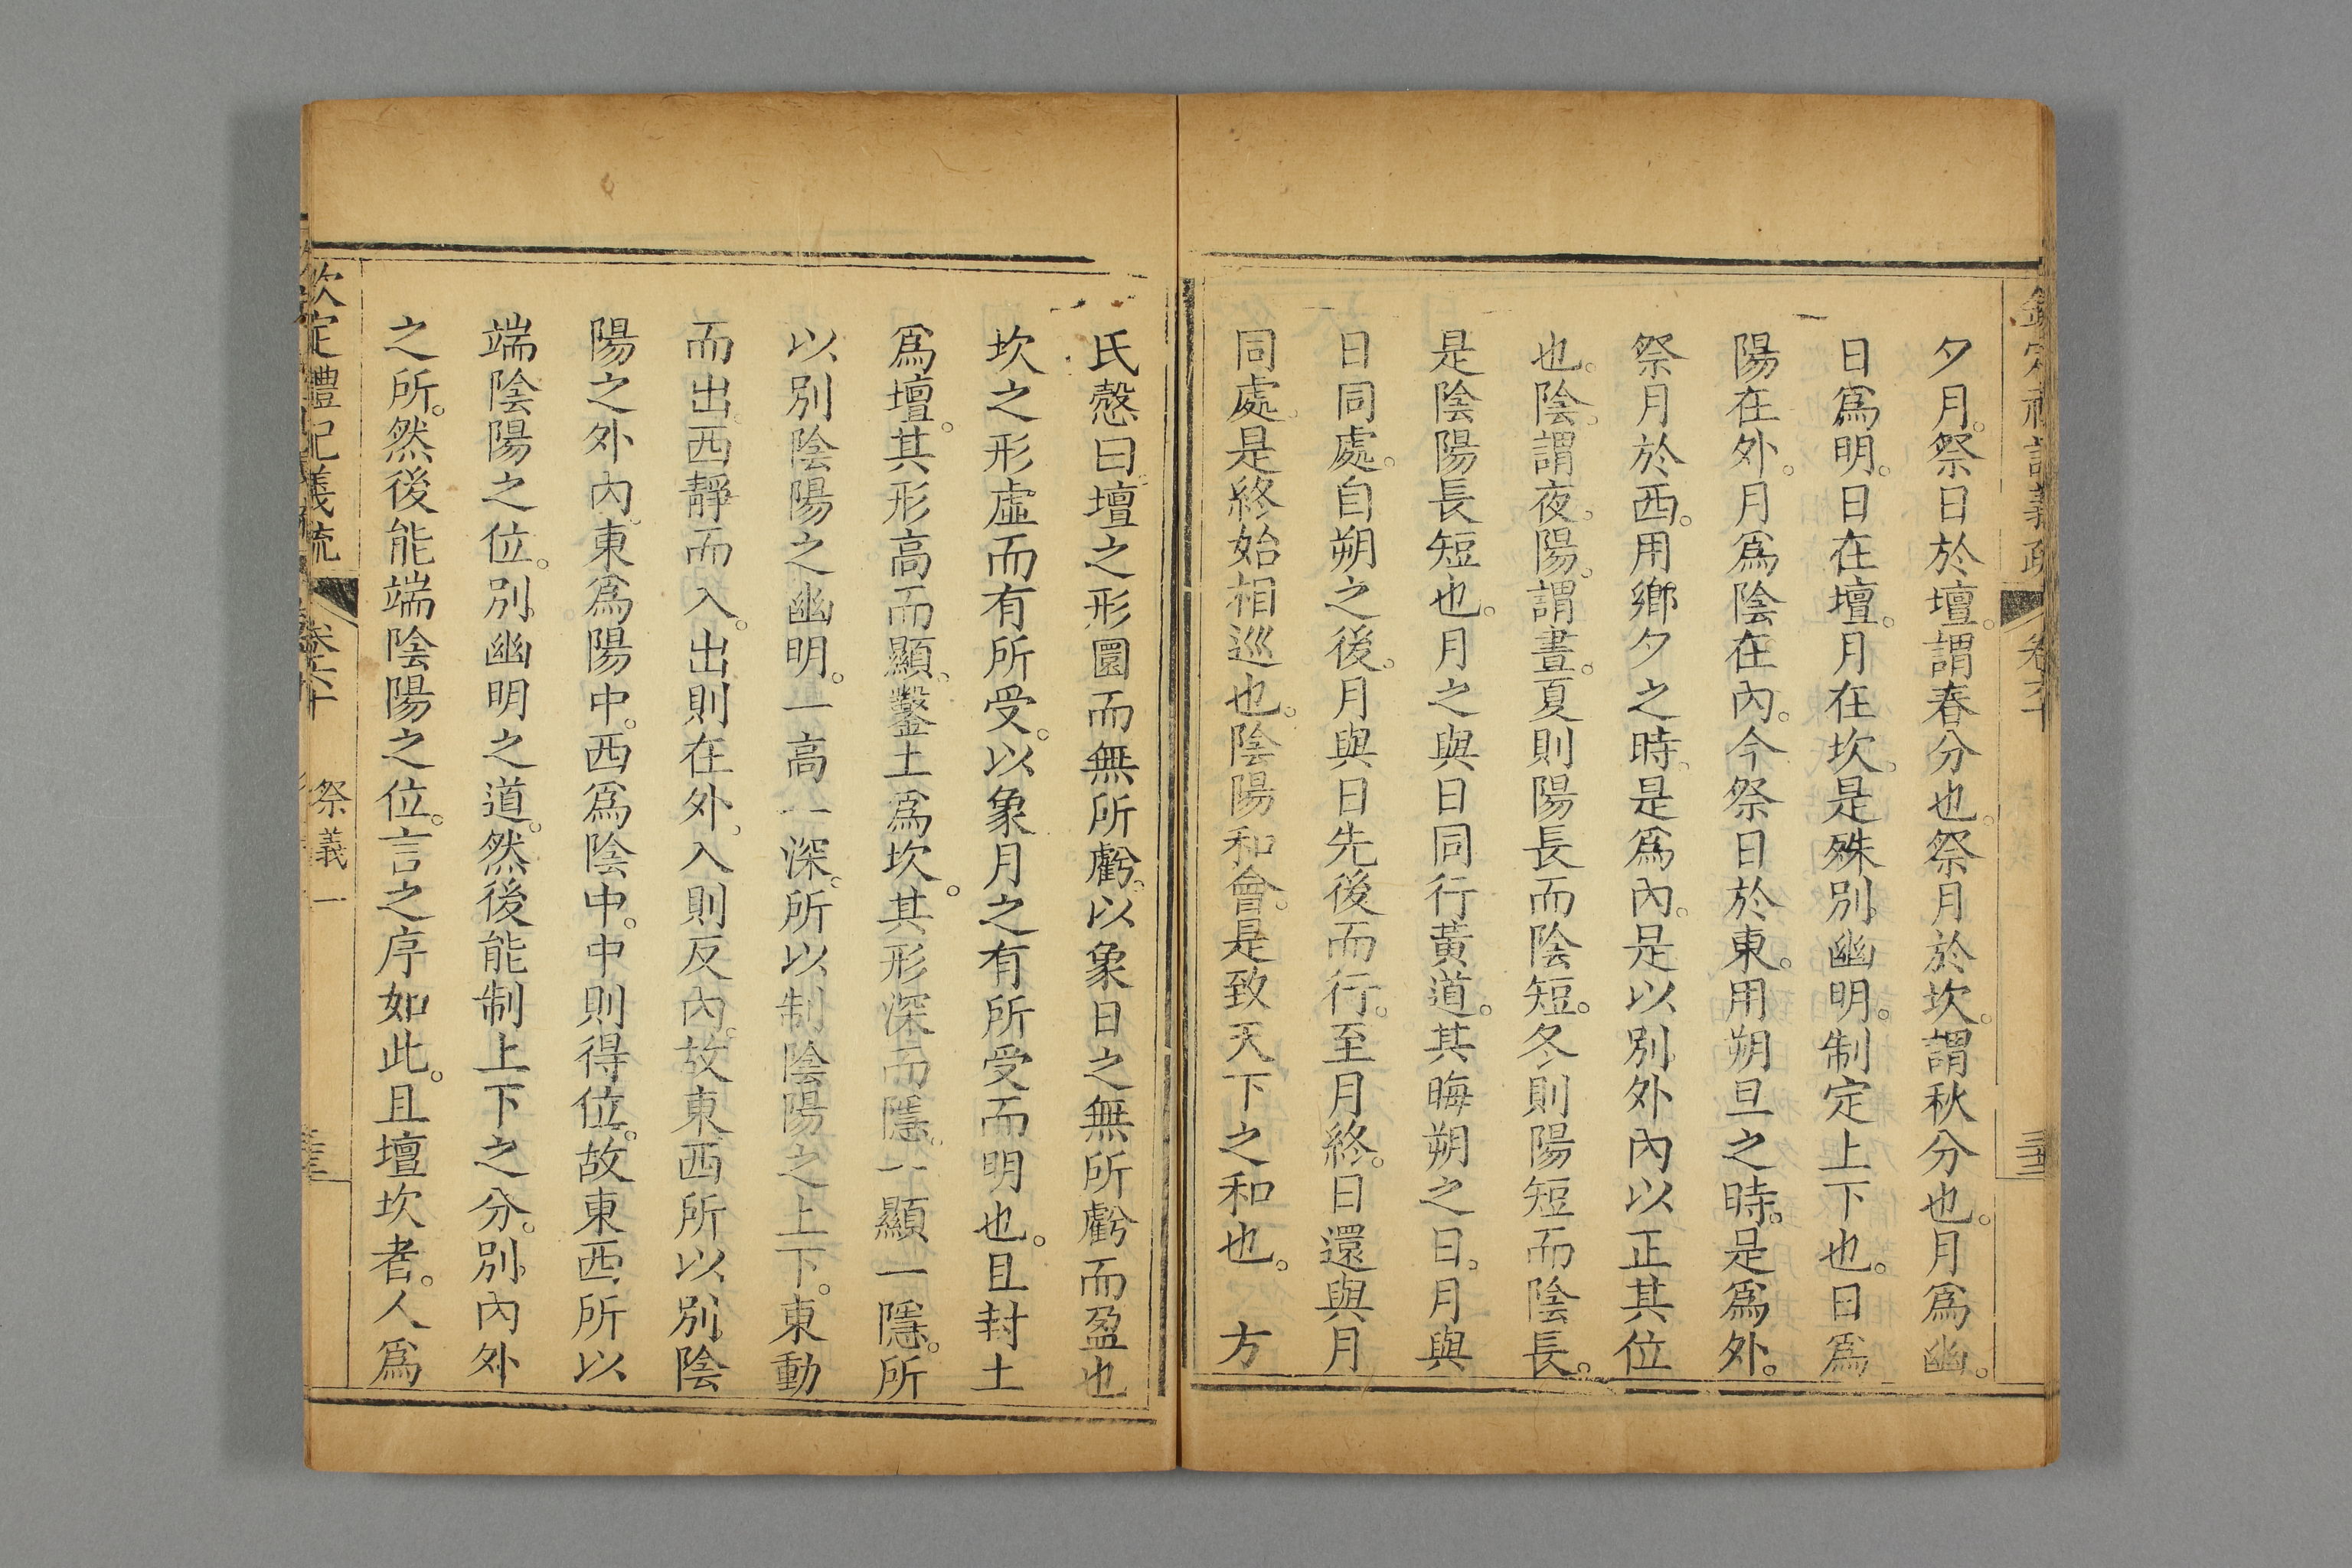 夕月。祭日於壇。謂春分也。祭月於坎。謂秋分也。月爲幽。
日爲明。日在壇。月在坎。是殊別幽明。制定上下也。日爲
陽在外。月爲陰在內。今祭日於東。用朔旦之時。是爲外。
祭月於西。用鄉夕之時。是爲內。是以別外內以正其位
也。陰。謂夜。陽。謂晝。夏則陽長而陰短。冬則陽短而陰長。
是陰陽長短也。月之與日同行黃道。其晦朔之日。月與
日同處。自朔之後。月與日先後而行。至月終。日還與月
同處。是終始相巡也。陰陽和會。是致天下之和也。　方
氏愨曰。壇之形圜而無所虧。以象日之無所虧而盈也
坎之形虛而有所受。以象月之有所受而明也。且封土
爲壇。其形高而顯。鑿土爲坎。其形深而隱。一顯一隱。所
以別陰陽之幽明。一高一深。所以制陰陽之上下。東動
而出。西靜而入。出則在外。入則反內。故東西所以別陰
陽之外內。東爲陽中。西爲陰中。中則得位。故東西所以
端陰陽之位。別幽明之道。然後能制上下之分。別內外
之所。然後能端陰陽之位。言之序如此。且壇坎者。人爲
欽定禮記義疏　卷六十　祭義一